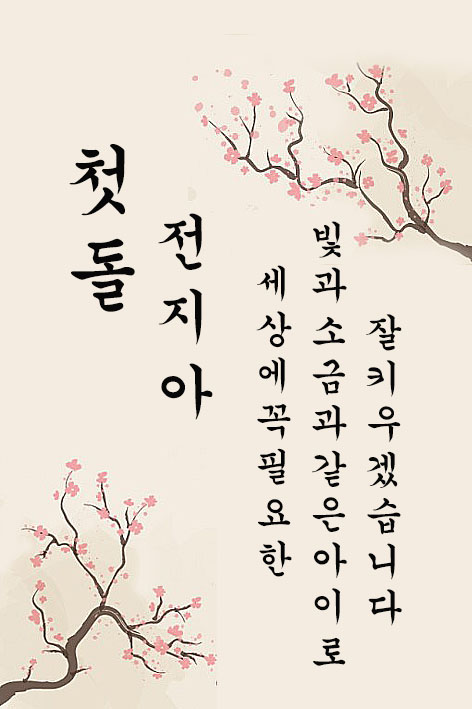 첫돌
전지아
세상에꼭필요한
빛과소금과같은아이로
잘키우겠습니다